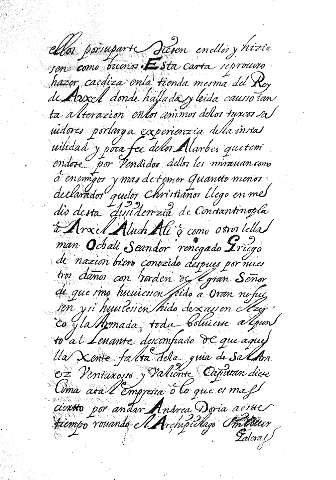 ellos por su parte diesen en ellos y hizie
sen como buenos. Esta carta se procuro
hazer caediza en la tienda mesma del Rey
de Arxel donde hallada y leida causso tan
ta alterazion en los animos delos turcos sa
uidores por larga experienzia dela insta
uilidad y poca fee delos Alarbes que teni
endose por vendidos dellos les mirauan como
ô enemigos y mas detemer quanto menos
declarados quelos Christianos llego en me
dio desta disidenzia de Constantinopla
à Arxel Aluch Ali ô como otros lella
man Ochali Scandor renegado Griego
de nazion bien conozido despues por nues
tros daños con horden del gran Señor
de que sino huuiesen hido a Oran no fue
sen y si huuiesen hido dexassen el zer
co y la Armada toda boluiese a lpun
to al Leuante desconfiado de que aque
lla Xente falta dela guia de Sal Ara
ez Venturosso y Valiente Capitan diese
Cima ata l Empresa ô lo que es mas
cierto por andar Andrea Doria a este
tiempo rouando el Archipielago
Galeras